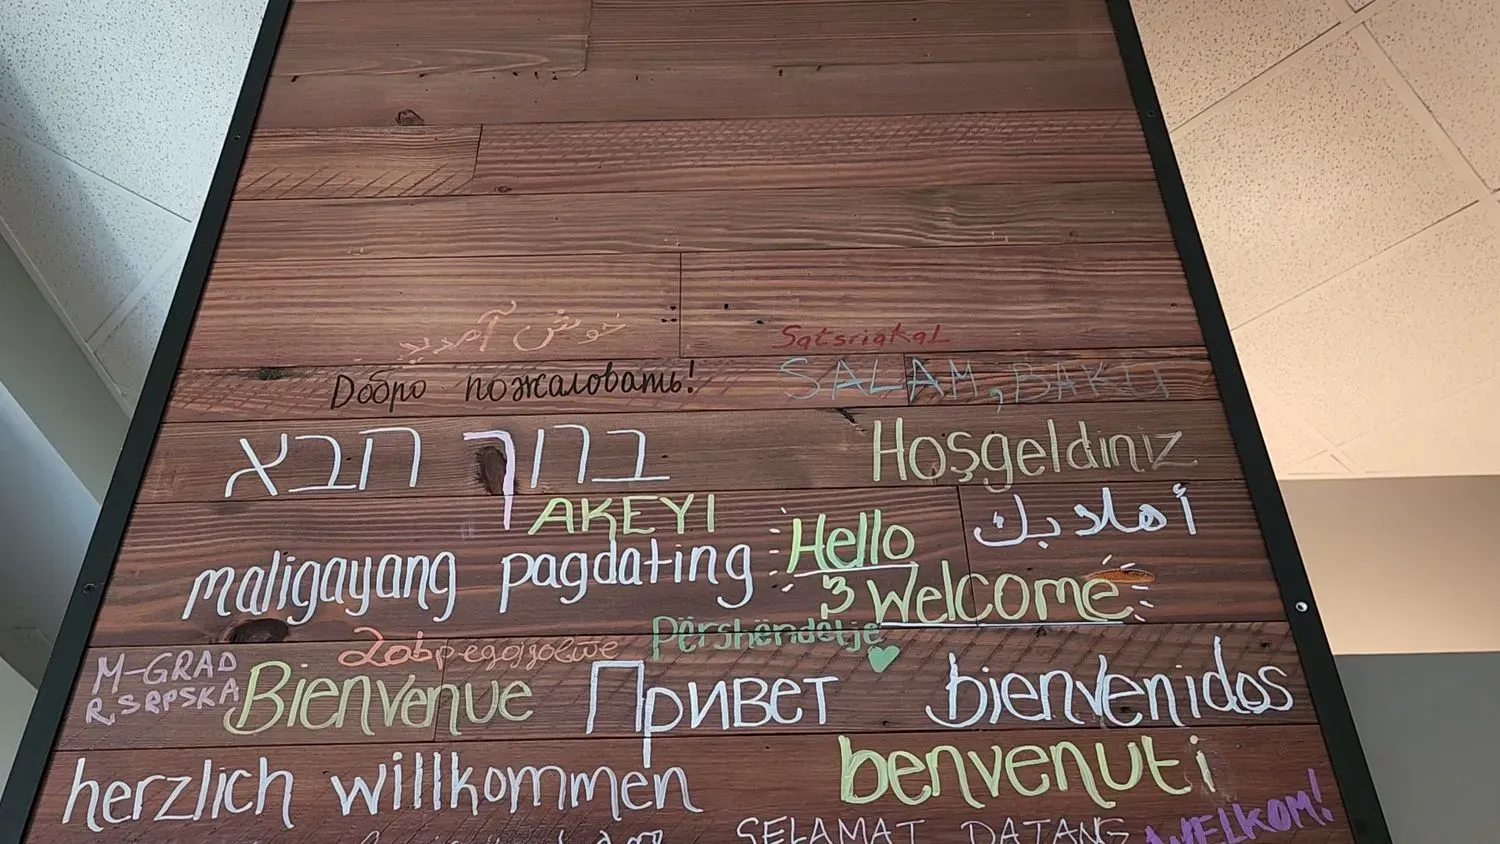 خوش آمدید
Satsriakal
Добро пожаловать!
SALAM, BAKU
ברוך הבא
Hoşgeldiniz
AKEYI
أهلا بك
maligayang pagdating
Hello
& Welcome
Përshëndetje
Добредојдовте
M-GRAD
R.SRPSKA
Bienvenue
Привет
bienvenidos
herzlich willkommen
benvenuti
SELAMAT DATANG
WELKOM!